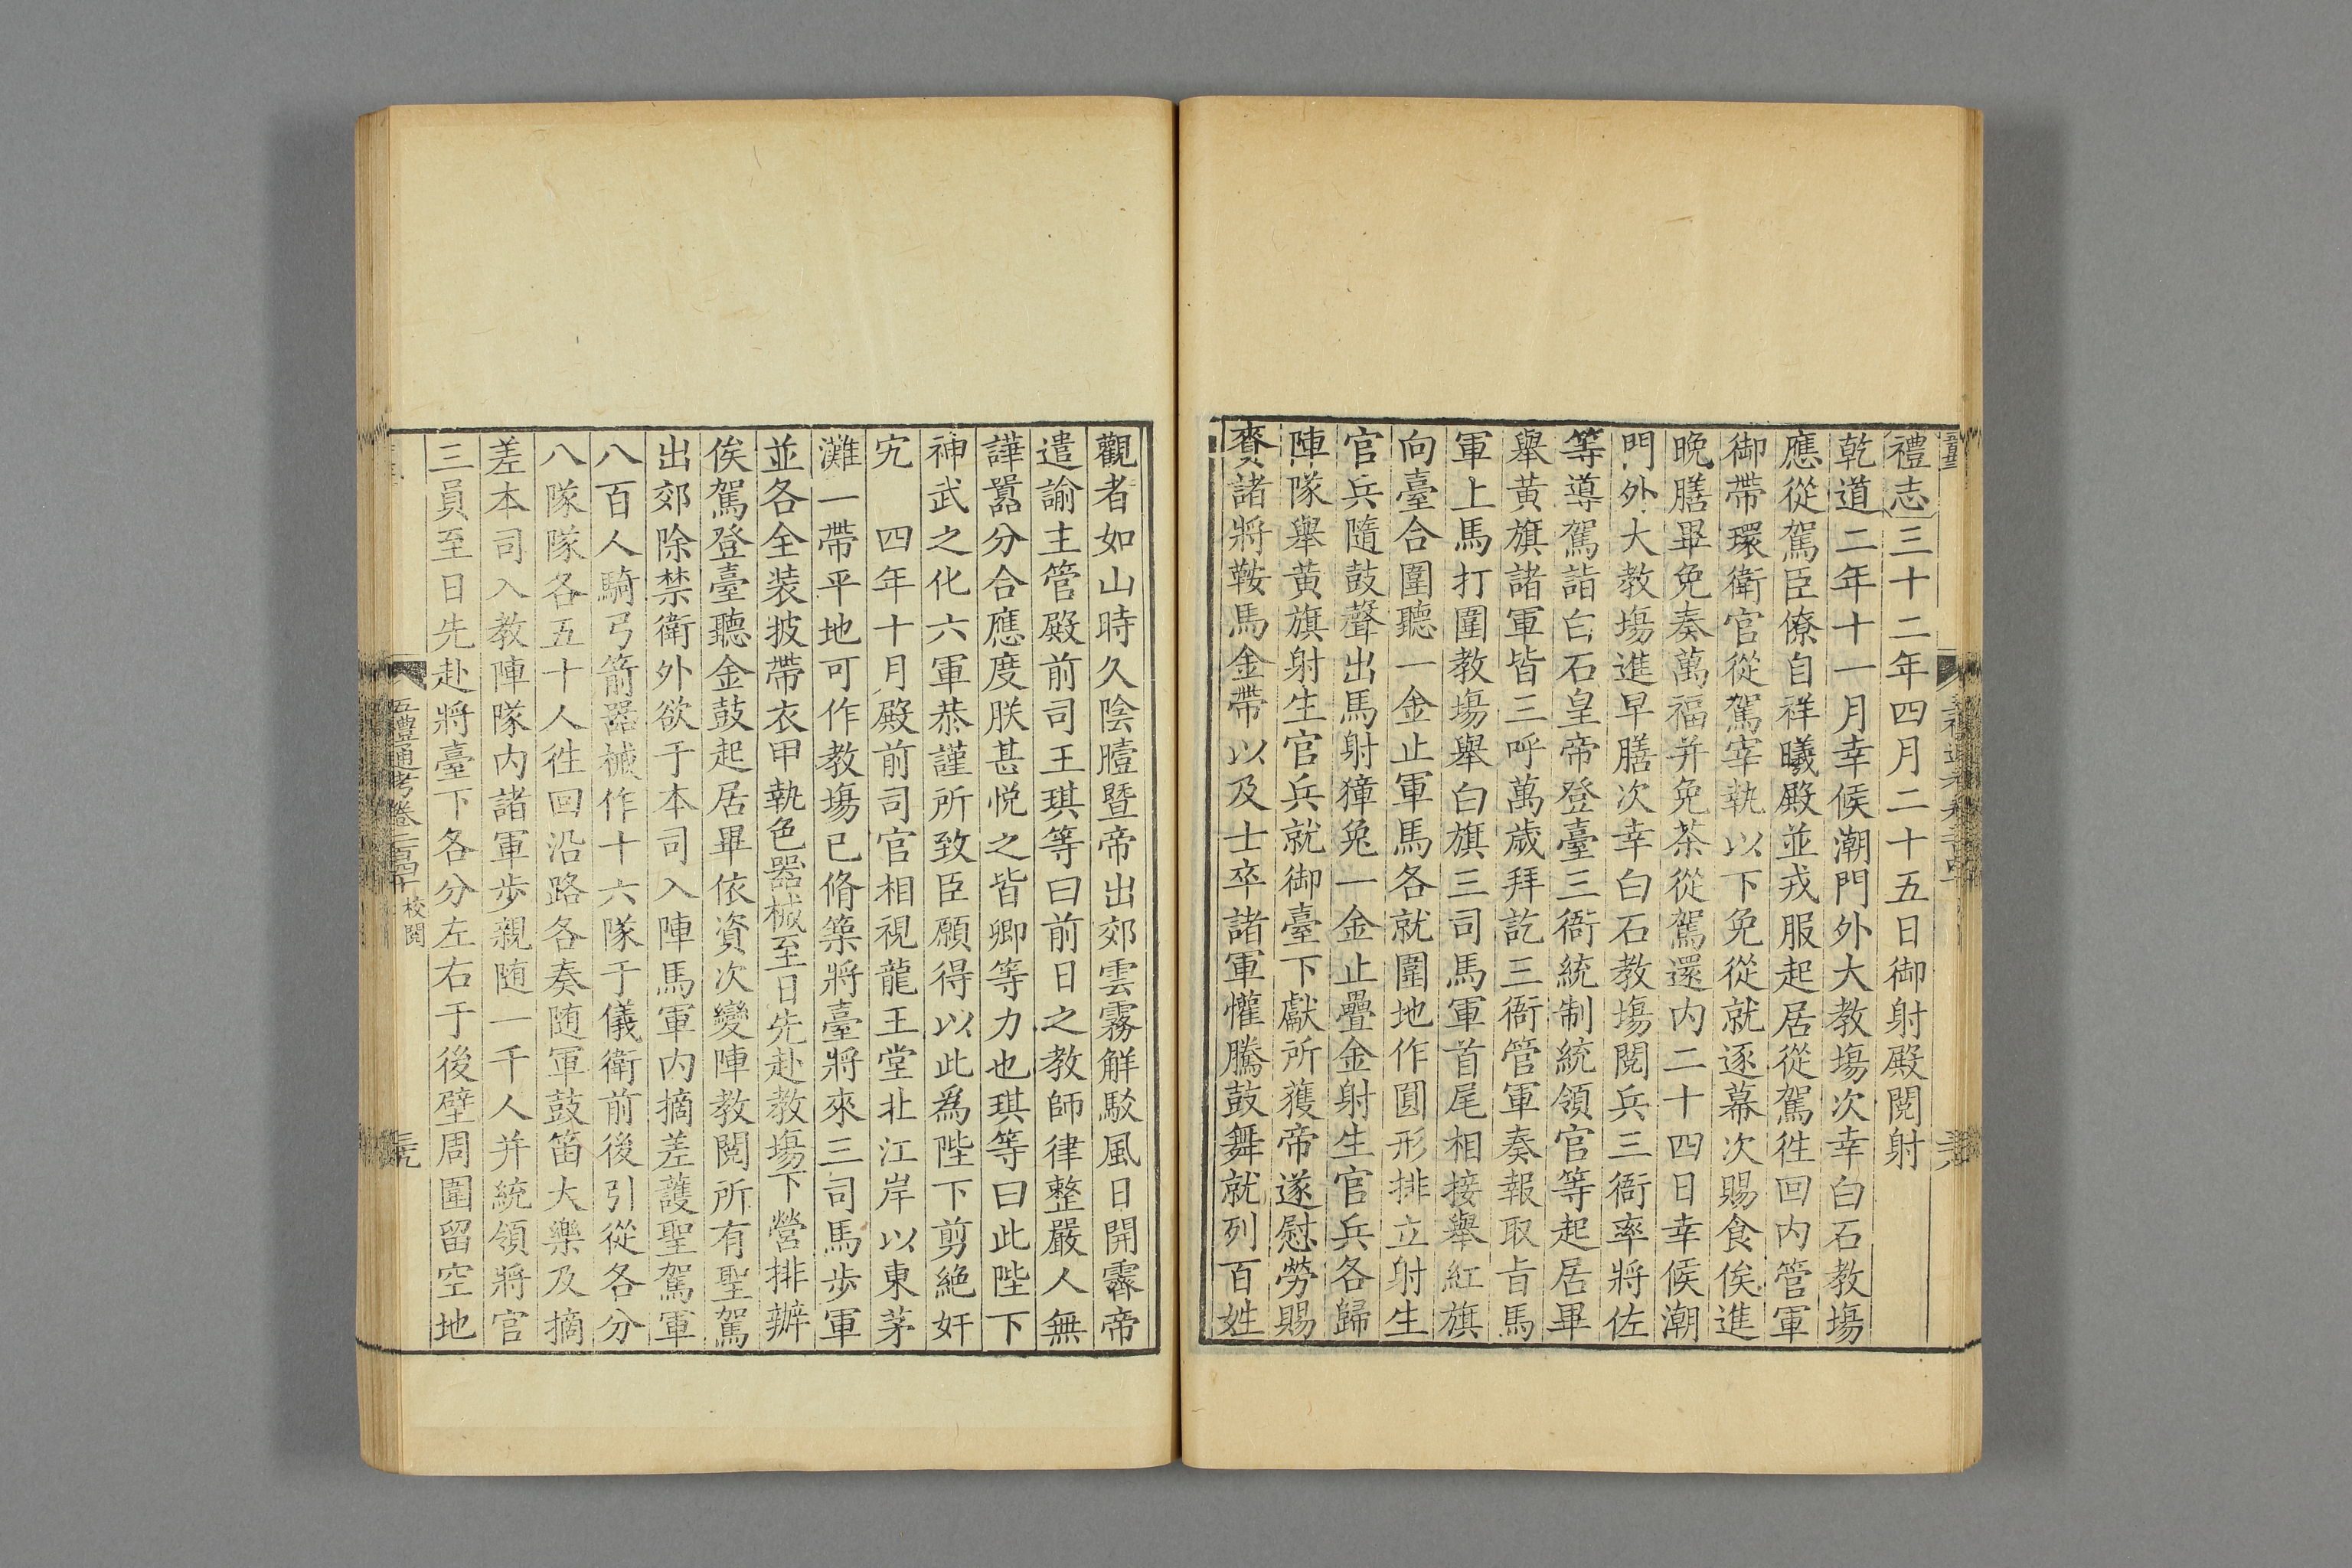 禮志三十二年四月二十五日御射殿閱射
乾道二年十一月幸候潮門外大教塲次幸白石教塲
應從駕臣僚自祥曦殿並戎服起居從駕徃回内管軍
御帶環衛官從駕宰執以下免從就逐幕次賜食俟進
晚膳畢免奏萬福并免茶從駕還内二十四日幸候潮
門外大教塲進早膳次幸白石教塲閱兵三衙率將佐
等導駕詣白石皇帝登臺三衙統制統領官等起居畢
舉黃旗諸軍皆三呼萬歲拜訖三衙管軍奏報取旨馬
軍上馬打圍教塲舉白旗三司馬軍首尾相接舉紅旗
向臺合圍聽一金止軍馬各就圍地作圓形排立射生
官兵隨鼓聲出馬射獐兔一金止疊金射生官兵各歸
陣隊舉黃旗射生官兵就御臺下獻所獲帝遂慰勞賜
賚諸將鞍馬金帶以及士卒諸軍懽騰鼓舞就列百姓
觀者如山時久陰曀暨帝出郊雲霧解駁風日開霽帝
遣諭主管殿前司王琪等曰前日之教師律整嚴人無
譁嚚分合應度朕甚悅之皆卿等力也琪等曰此陛下
神武之化六軍恭謹所致臣願得以此為陛下剪絕奸
宄　四年十月殿前司官相視龍王堂北江岸以東茅
灘一帶平地可作教塲已脩築將臺將來三司馬步軍
並各全装披帶衣甲執色器械至日先赴教塲下營排辦
俟駕登臺聽金鼓起居畢依資次變陣教閱所有聖駕
出郊除禁衛外欲于本司入陣馬軍内摘差䕶聖駕軍
八百人騎弓箭器械作十六隊于儀衛前後引從各分
八隊隊各五十人徃回沿路各奏随軍鼓笛大樂及摘
差本司入教陣隊内諸軍歩親随一千人并統領將官
三員至日先赴將臺下各分左右于後壁周圍留空地
五禮通考卷二百四十 校閱
三九